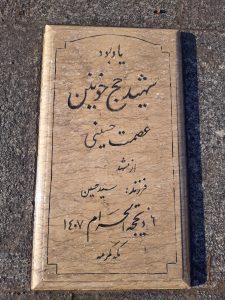 یادبود
شهید حج خونین
عصمت حسینی
از مشهد
فرزند: سیدحسین
۶ ذیحجه الحرام ۱۴۰۷
مکه مکرمه